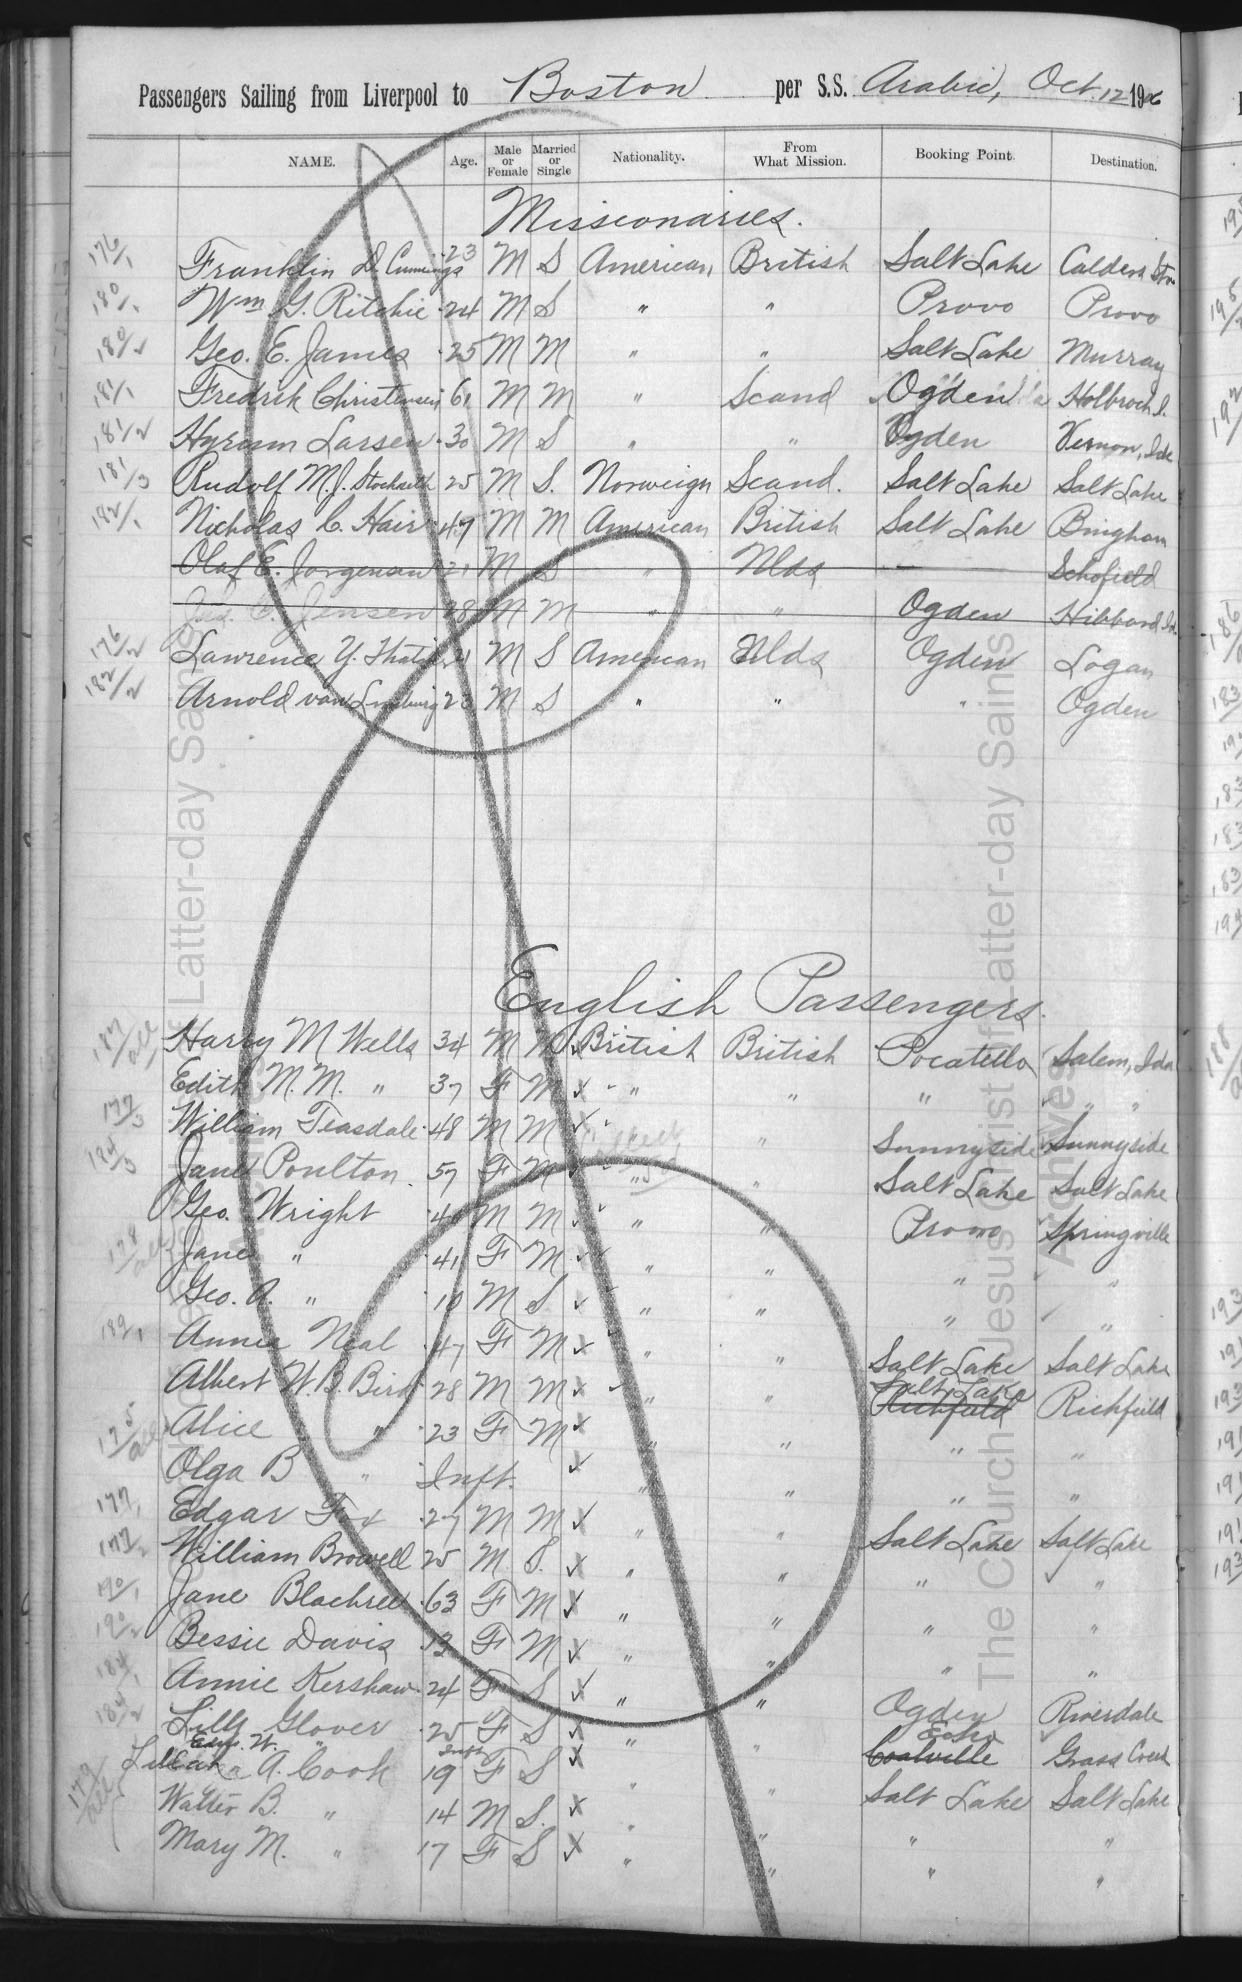 Passengers Sailing from Liverpool to Boston per S.S. Arabic, Oct. 12 1906
NAME. Age. Male or Female Married or Single Nationality. From What Mission. Booking Point. Destination.
Missionaries.
176/1 Franklin D. Cummings 23 M S American British Salt Lake Calders
180/1 Wm. G. Ritchie 24 M S " " Provo Provo
180/2 Geo. E. James 25 M M " " Salt Lake Murray
181/1 Fredrik Christensen 61 M M " Scand Ogden Holbrook I.
181/2 Hyrum Larsen 30 M S " " Ogden Vernon, Ida
181/3 Rudolf M. J. 25 M S. Norweign Scand. Salt Lake Salt Lake
182/1 Nicholas C. Hair 47 M M American British Salt Lake Bingham
Olaf E. Jorgensen 21 M S " Nlds Schofield
Jas. C. Jensen 28 M M " " Ogden Hibbard
176/2 Lawrence Y. M S American Nlds Ogden Logan
182/2 Arnold van M S " " " Ogden
English Passengers.
187/all Harry M Wells 34 M M British British Pocatello Salem, Ida
Edith M. M. " 37 F M X " " " " "
177/3 William Teasdale 48 M M " " Sunnyside Sunnyside
184/3 Jane Poulton. 57 F M " " Salt Lake Salt Lake
Geo. Wright 40 M M " " Provo Springville
178/all Jane " 41 F M " " " "
Geo. A. " 10 M S " " " "
189/1 Annie Neal 47 F M X " " Salt Lake Salt Lake
Albert W. B. Bird 28 M M X " " Salt Lake Richfield Richfield
175/all Alice " 23 F M X " " " "
Olga B " Inft. X " " " "
177/1 Edgar Fox 27 M M X " " Salt Lake Salt Lake
177/2 William Browell 25 M. S. X " " " "
190/1 Jane 63 F M X " " " "
190/2 Bessie Davis F M X " " " "
184/1 Annie Kershaw 24 F S X " " Ogden Riverdale
184/2 Lilly Glover 25 F S X " " Echo Coalville Grass Creek
179/all A. Cook 19 F S X " " Salt Lake Salt Lake
Walter B. " 14 M S. X " " " "
Mary M. " 17 F S X " " " "
The Church of Jesus Christ of Latter-day Saints
Archives